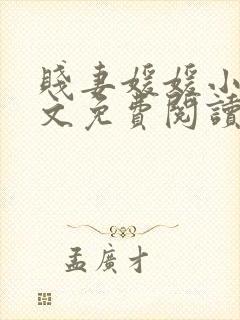 賤妻媛媛小
文免費閱讀
孟廣才